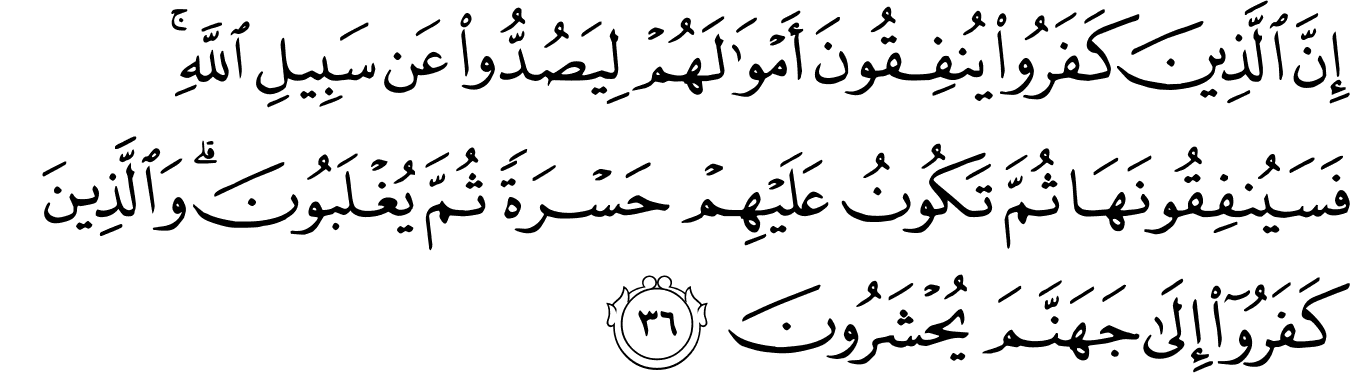 إِنَّ ٱلَّذِينَ كَفَرُوا۟ يُنفِقُونَ أَمْوَٰلَهُمْ لِيَصُدُّوا۟ عَن سَبِيلِ ٱللَّهِ ۚ
فَسَيُنفِقُونَهَا ثُمَّ تَكُونُ عَلَيْهِمْ حَسْرَةً ثُمَّ يُغْلَبُونَ ۗ وَٱلَّذِينَ
كَفَرُوٓا۟ إِلَىٰ جَهَنَّمَ يُحْشَرُونَ ٣٦